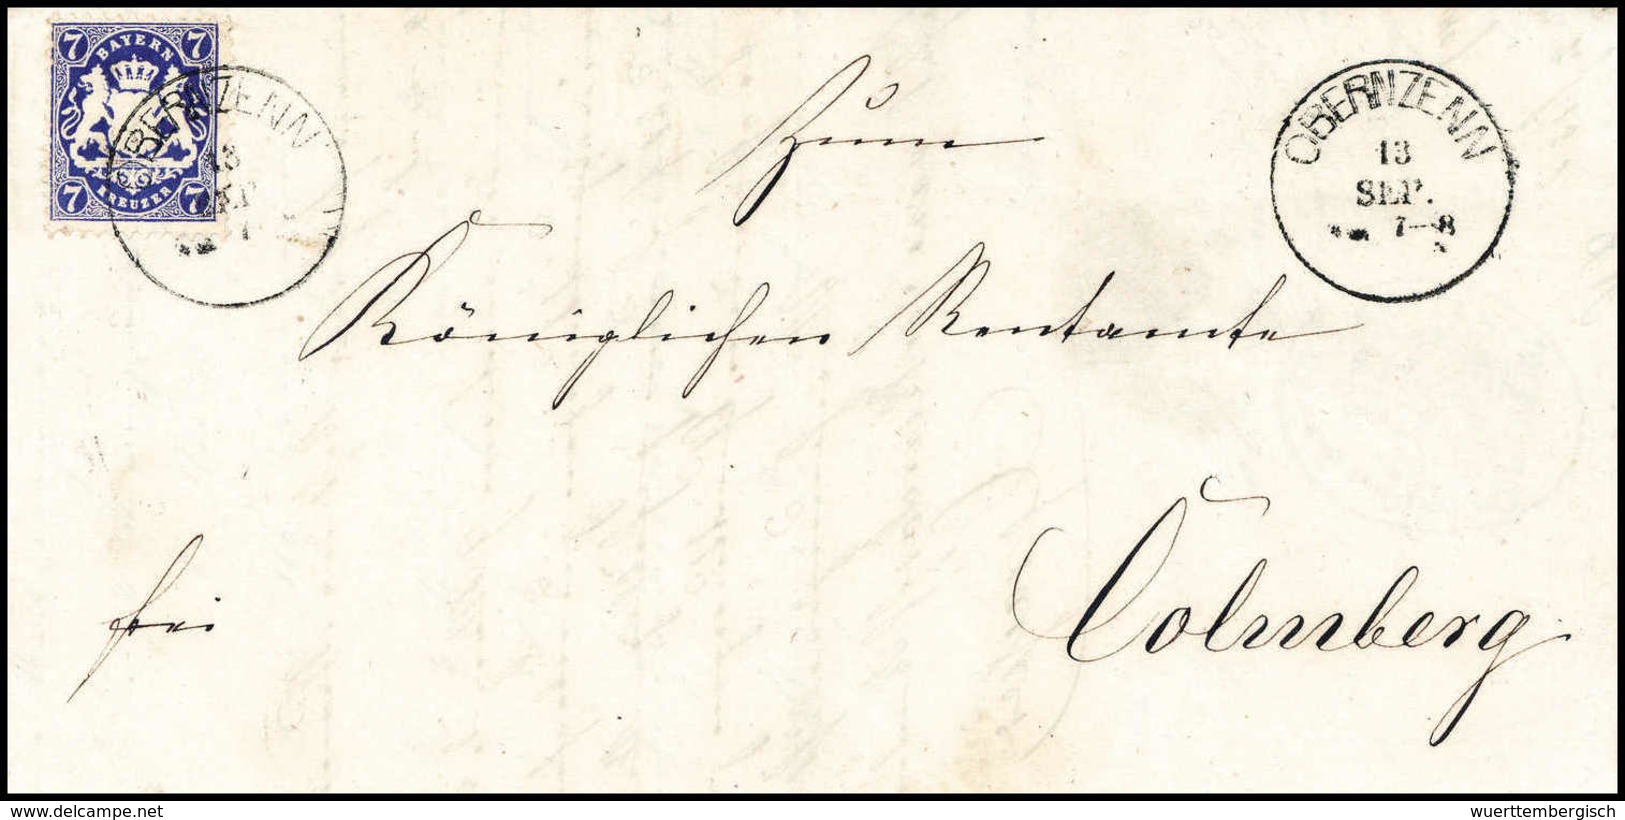 7 BAYERN 7
7 KREUZER 7
OBERNZENN
13
SEP
7
OBERNZENN
13
SEP.
7-8
Zum
Königlichen Rentamte
Colmberg
frei
wuerttembergisch